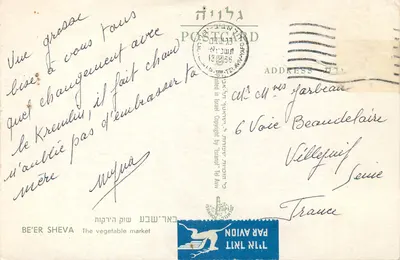 Une grosse
bise à vous tous
quel changement avec
le Kremlin, il fait chaud
n'oublie pas d'embrasser ta
mère
Myna
גלויה
POSTCARD
ADDRESS
Mr Mmes Jarbeau
6 Voie Beaudelaire
Villejuif
Seine
France
באר-שבע שוק הירקות
BE'ER SHEVA The vegetable market
דואר אויר
PAR AVION